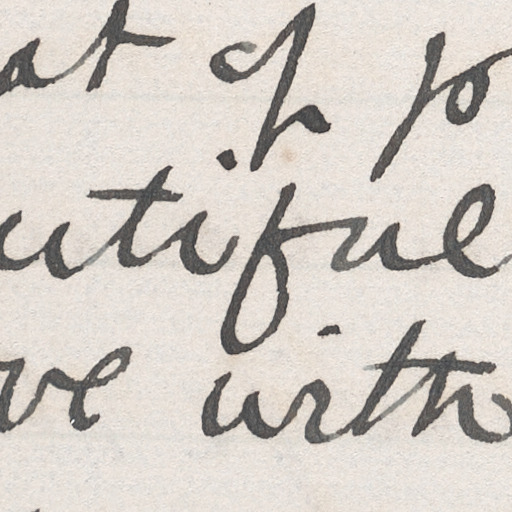 at of yo
utiful
ve with